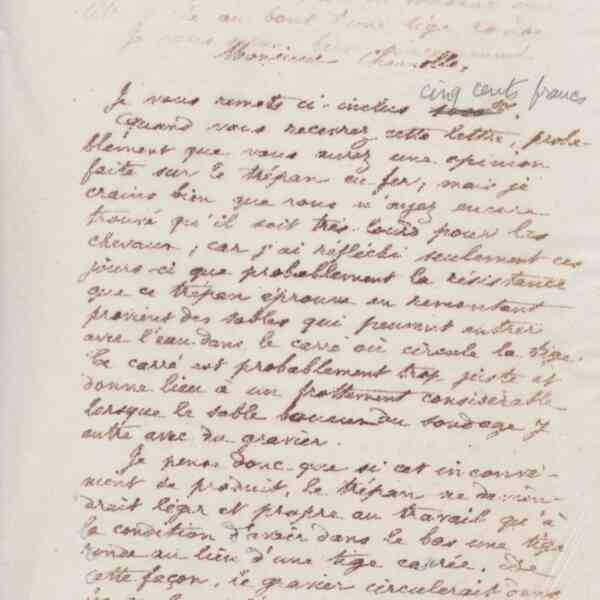 au bout d'une tige ronde
Je vous
Monsieur Chamolle,
cinq cents francs
Je vous remets ci-inclus
Quand vous recevrez cette lettre, proba-
blement que vous aurez une opinion
faite sur le trépan en fer, mais je
crains bien que vous n'ayez encore
trouvé qu'il soit très lourd pour les
chevaux ; car j'ai réfléchi seulement ces
jours-ci que probablement la résistance
que ce trépan éprouve en remontant
provient des sables qui peuvent entrer
avec l'eau dans le carré où circule la tige.
Ce carré est probablement trop juste et
donne lieu à un frottement considérable
lorsque le sable du sondage y
entre avec du gravier.
Je pense donc que si cet inconvé-
nient se produit, le trépan ne devien-
drait léger et propre au travail qu'à
la condition d'avoir dans le bas une tige
ronde au lieu d'une tige carrée. De
cette façon, le gravier circulerait dans